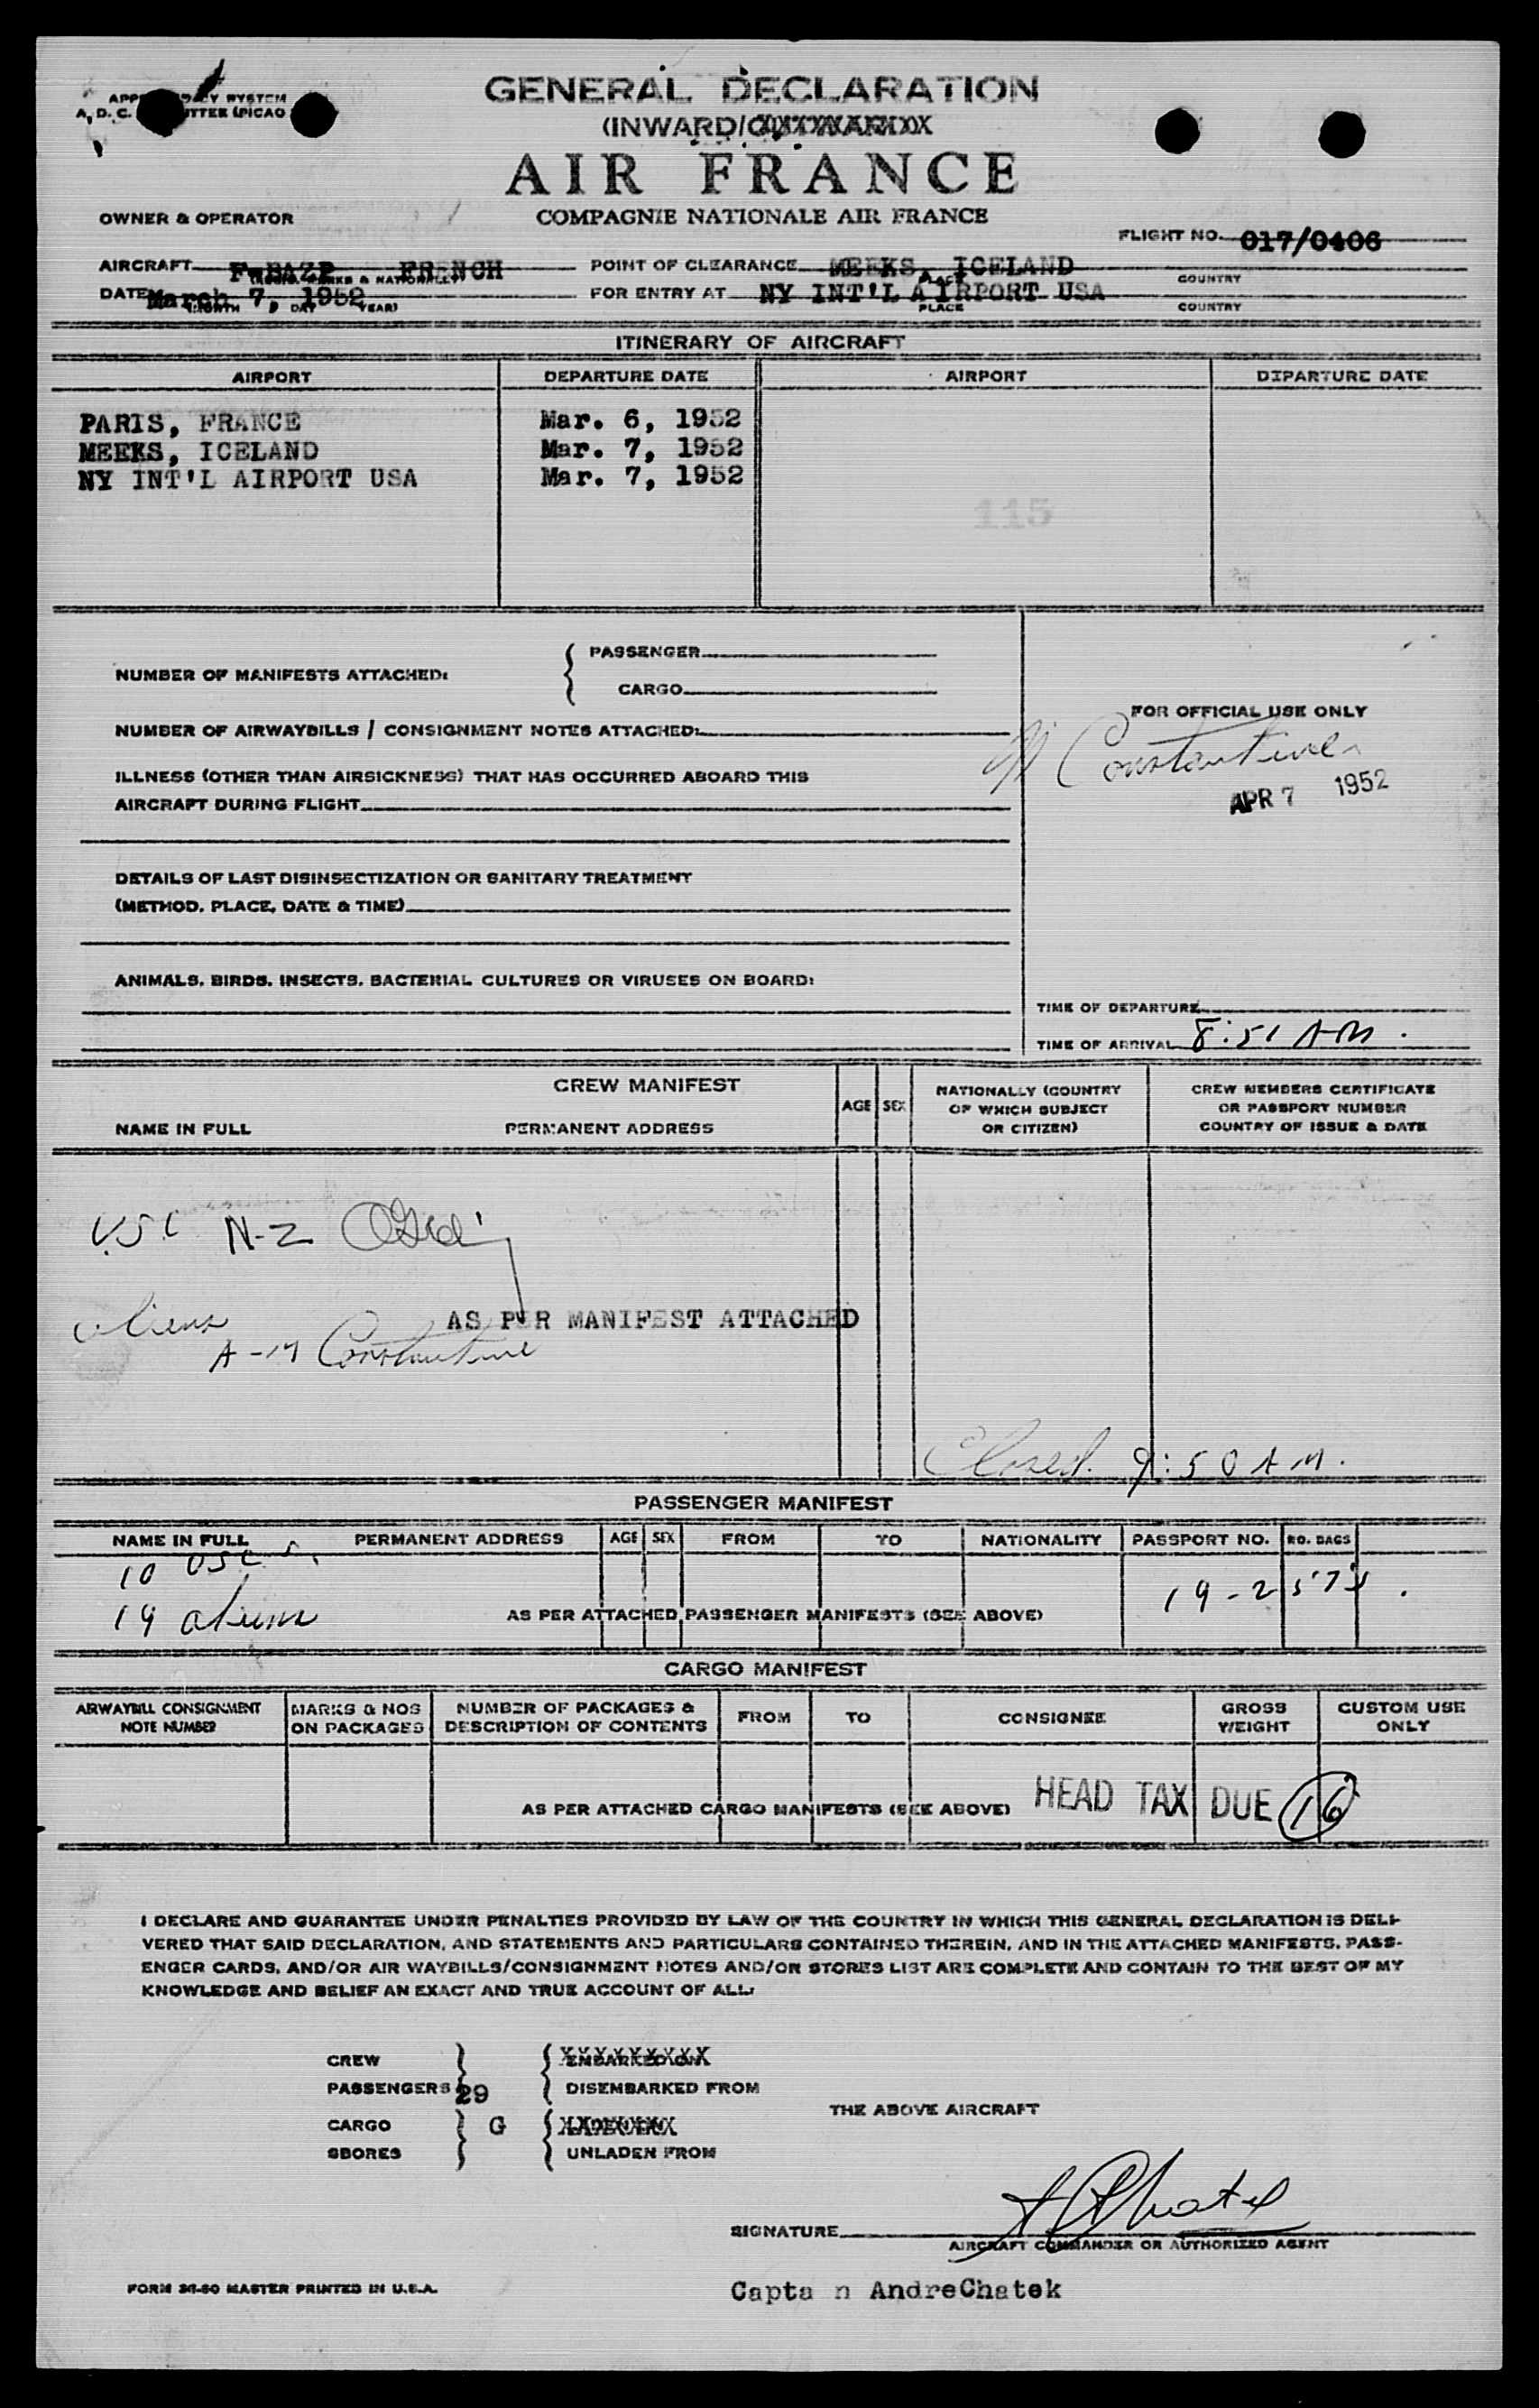 GENERAL DECLARATION
(INWARD/
AIR FRANCE
COMPAGNIE NATIONALE AIR FRANCE
OWNER & OPERATOR
FLIGHT NO. 017/0406
AIRCRAFT FRENCH
POINT OF CLEARANCE MEEKS, ICELAND
COUNTRY
DATE March 7, 1952
(MONTH DAY YEAR)
FOR ENTRY AT NY INT'L AIRPORT USA
PLACE
COUNTRY
ITINERARY OF AIRCRAFT
AIRPORT DEPARTURE DATE AIRPORT DEPARTURE DATE
PARIS, FRANCE Mar. 6, 1952
MEEKS, ICELAND Mar. 7, 1952
NY INT'L AIRPORT USA Mar. 7, 1952
115
NUMBER OF MANIFESTS ATTACHED:
PASSENGER
CARGO
NUMBER OF AIRWAYBILLS / CONSIGNMENT NOTES ATTACHED:
ILLNESS (OTHER THAN AIRSICKNESS) THAT HAS OCCURRED ABOARD THIS
AIRCRAFT DURING FLIGHT
DETAILS OF LAST DISINSECTIZATION OR SANITARY TREATMENT
(METHOD, PLACE, DATE & TIME)
ANIMALS, BIRDS, INSECTS, BACTERIAL CULTURES OR VIRUSES ON BOARD:
FOR OFFICIAL USE ONLY
Constantine
APR 7 1952
TIME OF DEPARTURE
TIME OF ARRIVAL 8:51 AM.
CREW MANIFEST
NAME IN FULL PERMANENT ADDRESS AGE SEX
NATIONALLY (COUNTRY
OF WHICH SUBJECT
OR CITIZEN)
CREW MEMBERS CERTIFICATE
OR PASSPORT NUMBER
COUNTRY OF ISSUE & DATE
USC N-Z
aliens
AS PER MANIFEST ATTACHED
A-M Constantine
Closed. 9:50 AM.
PASSENGER MANIFEST
NAME IN FULL PERMANENT ADDRESS AGE SEX FROM TO NATIONALITY PASSPORT NO. NO. BAGS
10 USC
19 aliens
AS PER ATTACHED PASSENGER MANIFESTS (SEE ABOVE)
CARGO MANIFEST
AIRWAYBILL CONSIGNMENT
NOTE NUMBER
MARKS & NOS
ON PACKAGES
NUMBER OF PACKAGES &
DESCRIPTION OF CONTENTS
FROM TO CONSIGNEE
GROSS
WEIGHT
CUSTOM USE
ONLY
AS PER ATTACHED CARGO MANIFESTS (SEE ABOVE)
HEAD TAX DUE 16
I DECLARE AND GUARANTEE UNDER PENALTIES PROVIDED BY LAW OF THE COUNTRY IN WHICH THIS GENERAL DECLARATION IS DELI-
VERED THAT SAID DECLARATION, AND STATEMENTS AND PARTICULARS CONTAINED THEREIN, AND IN THE ATTACHED MANIFESTS, PASS-
ENGER CARDS, AND/OR AIR WAYBILLS/CONSIGNMENT NOTES AND/OR STORES LIST ARE COMPLETE AND CONTAIN TO THE BEST OF MY
KNOWLEDGE AND BELIEF AN EXACT AND TRUE ACCOUNT OF ALL:
CREW
PASSENGERS 29
DISEMBARKED FROM
THE ABOVE AIRCRAFT
CARGO G
SBORES
UNLADEN FROM
SIGNATURE A Chatel
AIRCRAFT COMMANDER OR AUTHORIZED AGENT
FORM 36-50 MASTER PRINTED IN U.S.A.
Capta n AndreChatek